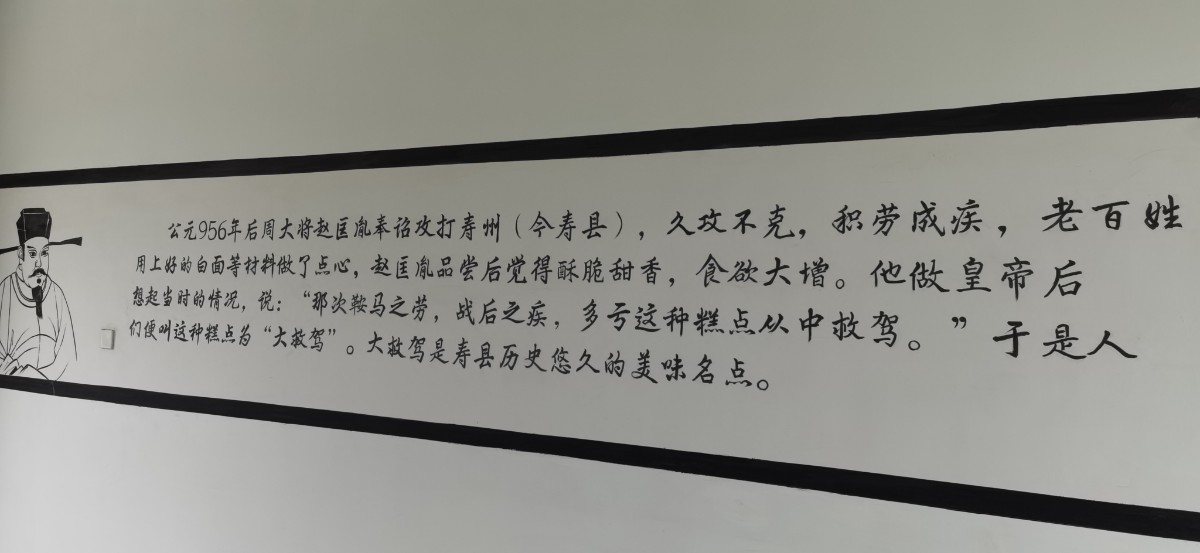 公元956年后周大将赵匡胤奉诏攻打寿州（今寿县），久攻不克，积劳成疾，老百姓
用上好的白面等材料做了点心，赵匡胤品尝后觉得酥脆甜香，食欲大增。他做皇帝后
想起当时的情况，说：“那次鞍马之劳，战后之疾，多亏这种糕点从中救驾。”于是人
们便叫这种糕点为“大救驾”。大救驾是寿县历史悠久的美味名点。